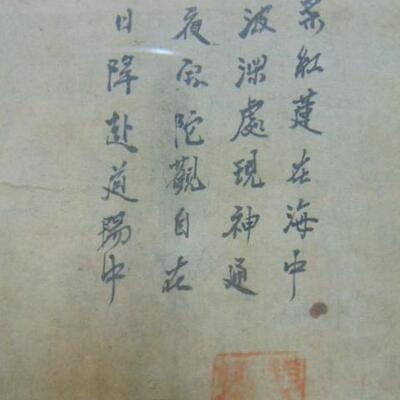 朶紅蓮在海中
波深處現神通
夜寶陀觀自在
日降赴道場中